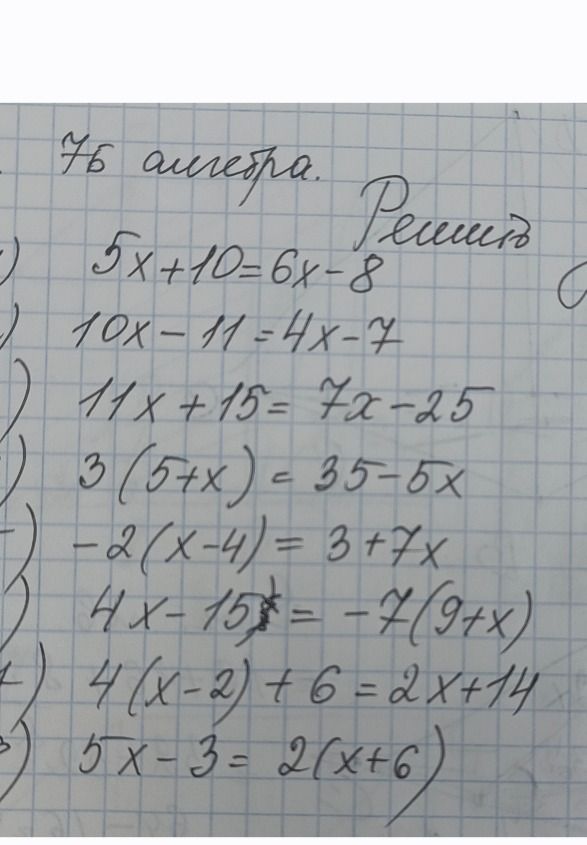 7б алгебра.
Решить
) 5x+10=6x-8
) 10x-11=4x-7
) 11x+15=7x-25
) 3(5+x)=35-5x
) -2(x-4)=3+7x
) 4x-15=-7(9+x)
) 4(x-2)+6=2x+14
) 5x-3=2(x+6)